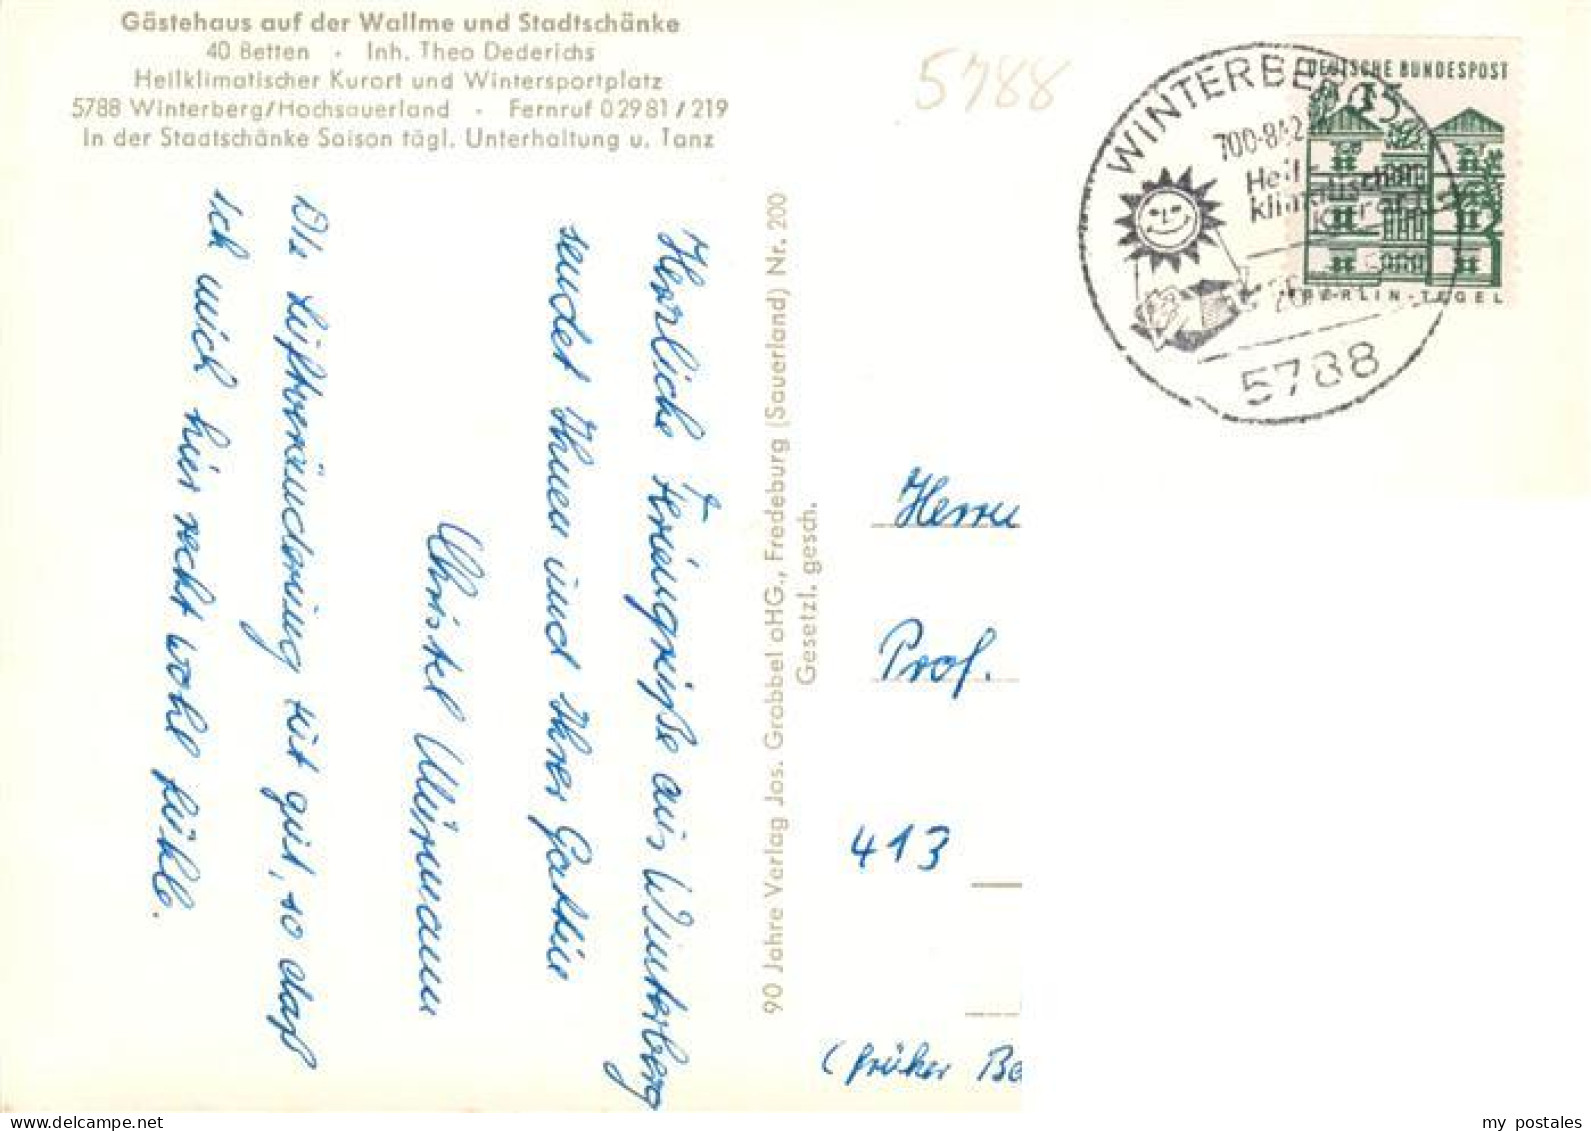 Gästehaus auf der Wallme und Stadtschänke
40 Betten · Inh. Theo Dederichs
Heilklimatischer Kurort und Wintersportplatz
5788 Winterberg/Hochsauerland · Fernruf 02981/219
In der Staatschänke Saison tägl. Unterhaltung u. Tanz
5788
DEUTSCHE BUNDESPOST
15
BERLIN-TEGEL
WINTERBERG
700-842
Heil-
klimatischer
Kurort
5788
Herzliche Feriengrüße aus Winterberg
sendet Ihnen und Ihrer Gattin
Christel Würmann
Die Luftveränderung tut gut, so daß
ich mich hier recht wohl fühle.
90 Jahre Verlag Jos. Grobbel oHG., Fredeburg (Sauerland) Nr. 200
Gesetzl. gesch.
Herrn
Prof.
413
(früher Be
my postales
www.delcampe.net